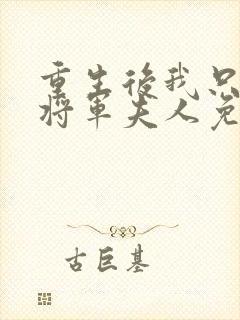 重生後我只
將軍夫人免
古巨基